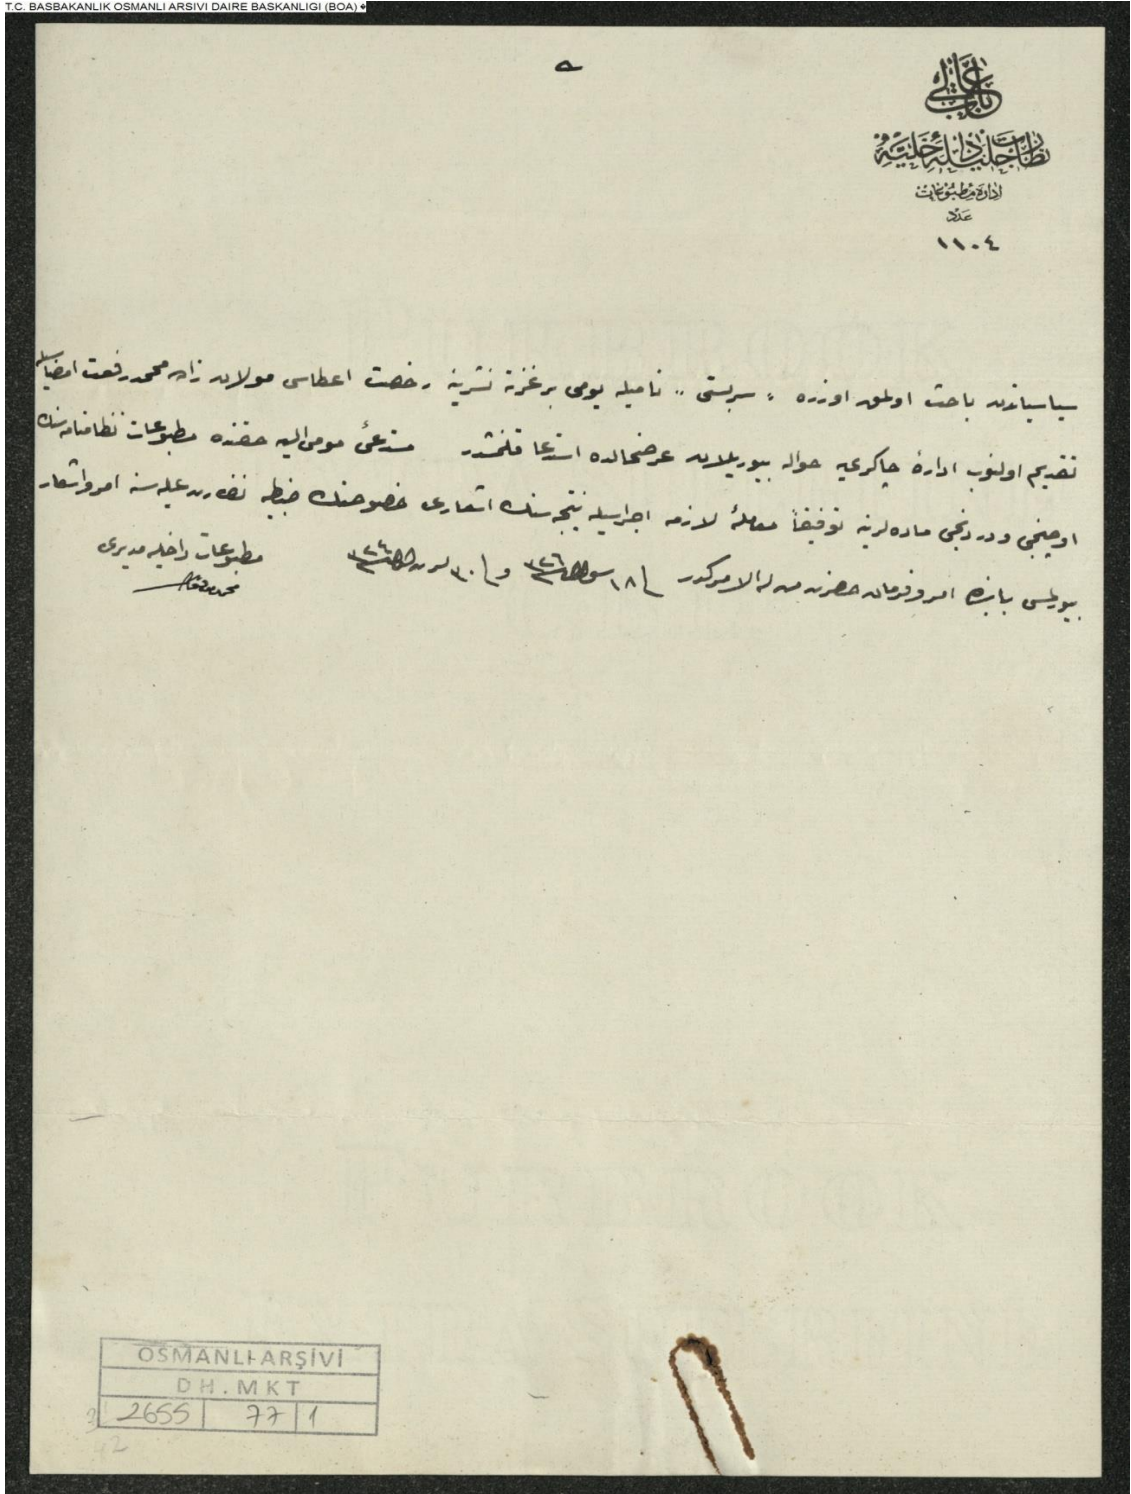 T.C. BASBAKANLIK OSMANLI ARSIVI DAIRE BASKANLIGI (BOA)
باب عالی
نظارت جلیلۀ داخلیه
ادارۀ مطبوعات
عدد
١١٠٤
سیاسیاتدن باحث اولمق اوزره « سربستی » نامیله یومی بر غزته نشرینه رخصت اعطاسی مولان زاده محمد رفعت امضاسیله
تقدیم اولنوب ادارۀ چاکری یه حواله بیوریلان عرضحالده استدعا قلنمشدر مستدعئ مومی الیه حقنده مطبوعات نظامنامه سنك
اوچنجی و دردنجی ماده لرینه توفیقاً معاملۀ لازمه اجراسیله نتیجه سنك اشعاری خصوصنك ضبطیه نظارت علیه سنه امر و اشعار
بیورلمسی بابنده امر و فرمان حضرت من له الامرکدر فی ١٨ سنه ٣٢٦ و فی ٣٠ سنه ٣٢٤
مطبوعات داخلیه مدیری
OSMANLI ARŞİVİ
DH.MKT
2655 77 1